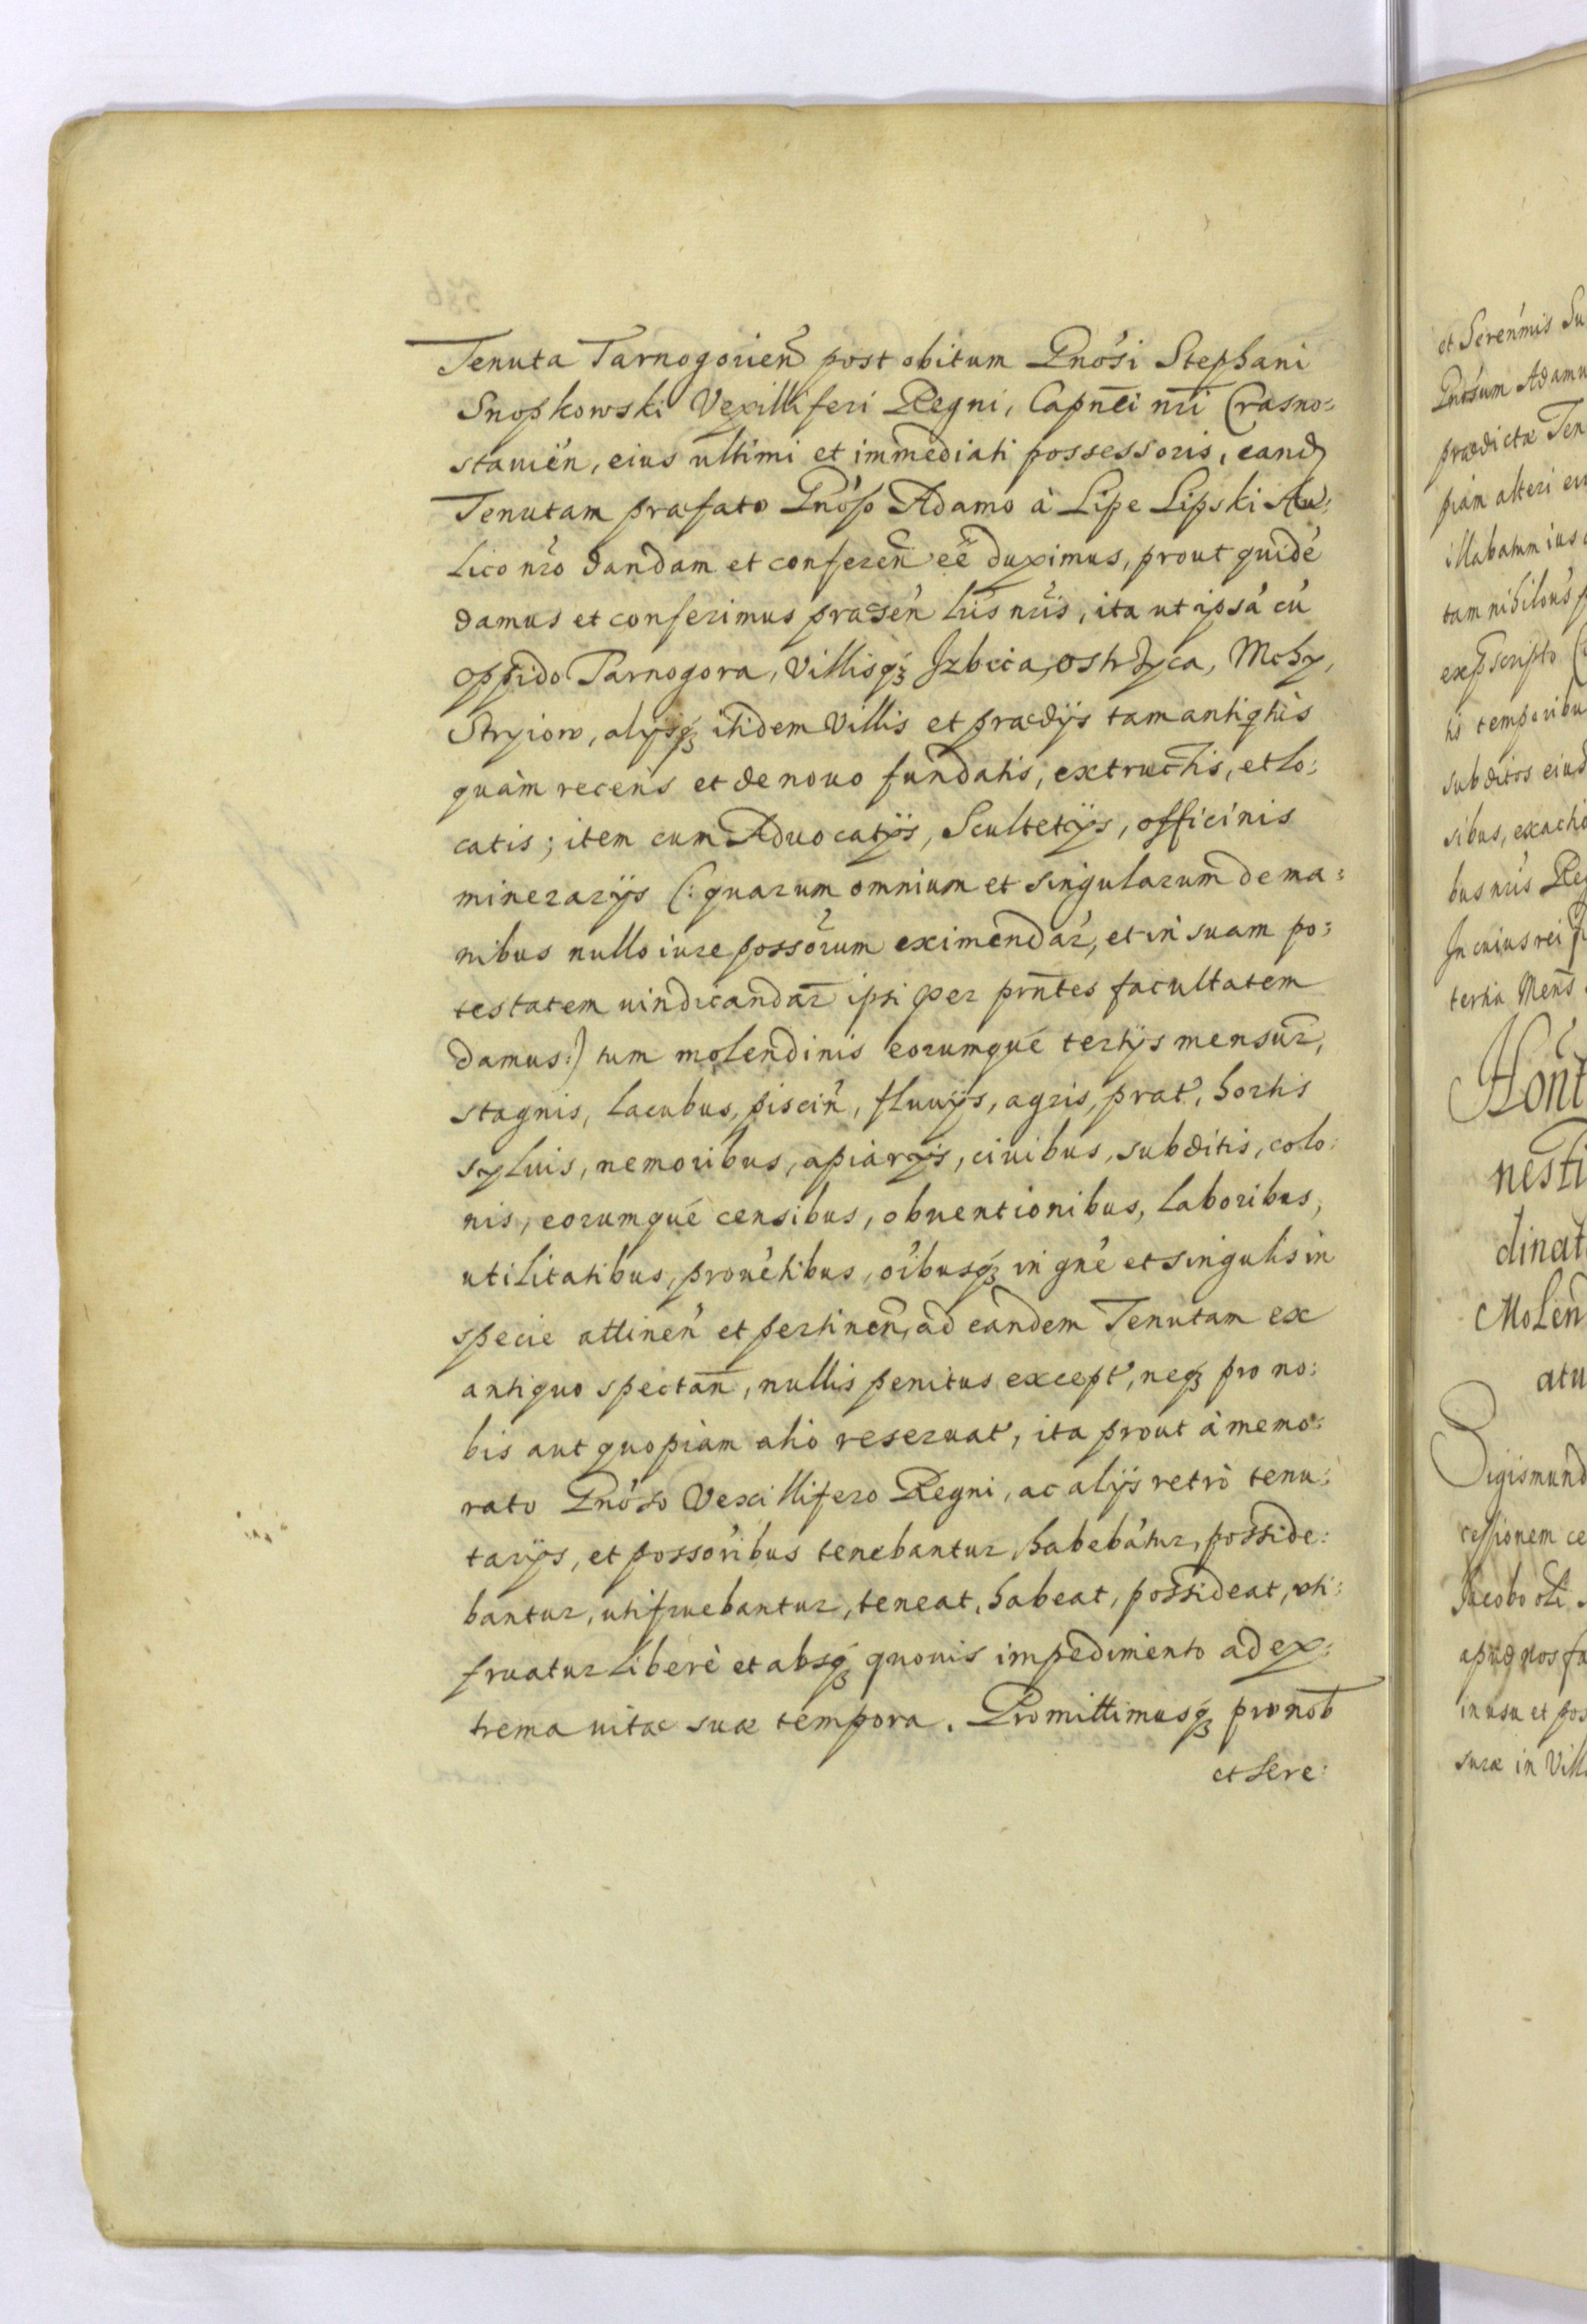 Tenuta Tarnogorien̄ post obitum Gnōsi Stephani
Snopkowski Vexilliferi Regni, Capn̄ei nr̄i Crasno:
stauiēn, eius ultimi et immediati possessoris, eand
Tenutam præfato Gnōso Adamo à Lipe Lipski Au:
lico nr̄o dandam et conferen̄ eē duximus, prout quidē
damus et conferimus præsēn lr̄is nr̄is, ita ut ipsā cū
oppido Tarnogora, villisq́ꝫ Jzbica, Ostrzyca, Mchy,
Stryiow, alijsq́ꝫ itidem villis et prædijs tam antiq̄tùs
quàm recens et de nouo fundatis, extructis, et lo:
catis; item cum Aduocatijs, Scultetijs, officinis
minerarijs (: quarum omnium et singularum de ma:
nibus nullo iure possōrum eximendar̄, et in suam po:
testatem uindicandar̄ ipsi per prn̄tes facultatem
damus:) tum molendinis eorumqué tertijs mensur̄,
stagnis, lacubus, piscin̄, fluuijs, agris, prat̄, hortis
syluis, nemoribus, apiarijs, ciuibus, subditis, colo:
nis, eorumqué censibus, obuentionibus, laboribus,
utilitatibus, prouētibus, oībusq́ꝫ in gnē et singulis in
specie attinēn et pertinen̄, ad eandem Tenutam ex
antiquo spectan̄, nullis penitus except̄, neqꝫ pro no:
bis aut quopiam alio reseruat̄, ita prout à memo:
rato Gnōso Vexillifero Regni, ac alijs retrò tenu:
tarijs, et possōribus tenebantur, habebātur, posside:
bantur, utifruebantur, teneat, habeat, possideat, uti:
fruatur liberè et absq́ꝫ quouis impedimento ad ex:
trema uitæ suæ tempora. Promittimusq́ꝫ pro nob̄
et Sere:
et Seren̄mis Su
Gnōsum Adamu
prædictæ Ten
piam alteri
illabatum ius
tam nihilōus
exp̄scripto
tis temporibu
subditos eiusd
sibus, exactio
bus nr̄is Reg
In cuius rei
tertia Mens̄
Hon̄t
nesti
dinat
Molen̄
atu
Sigismund
cessionem ce
Jacobo oli
apud nos fa
in usu et pos
suræ in Vill